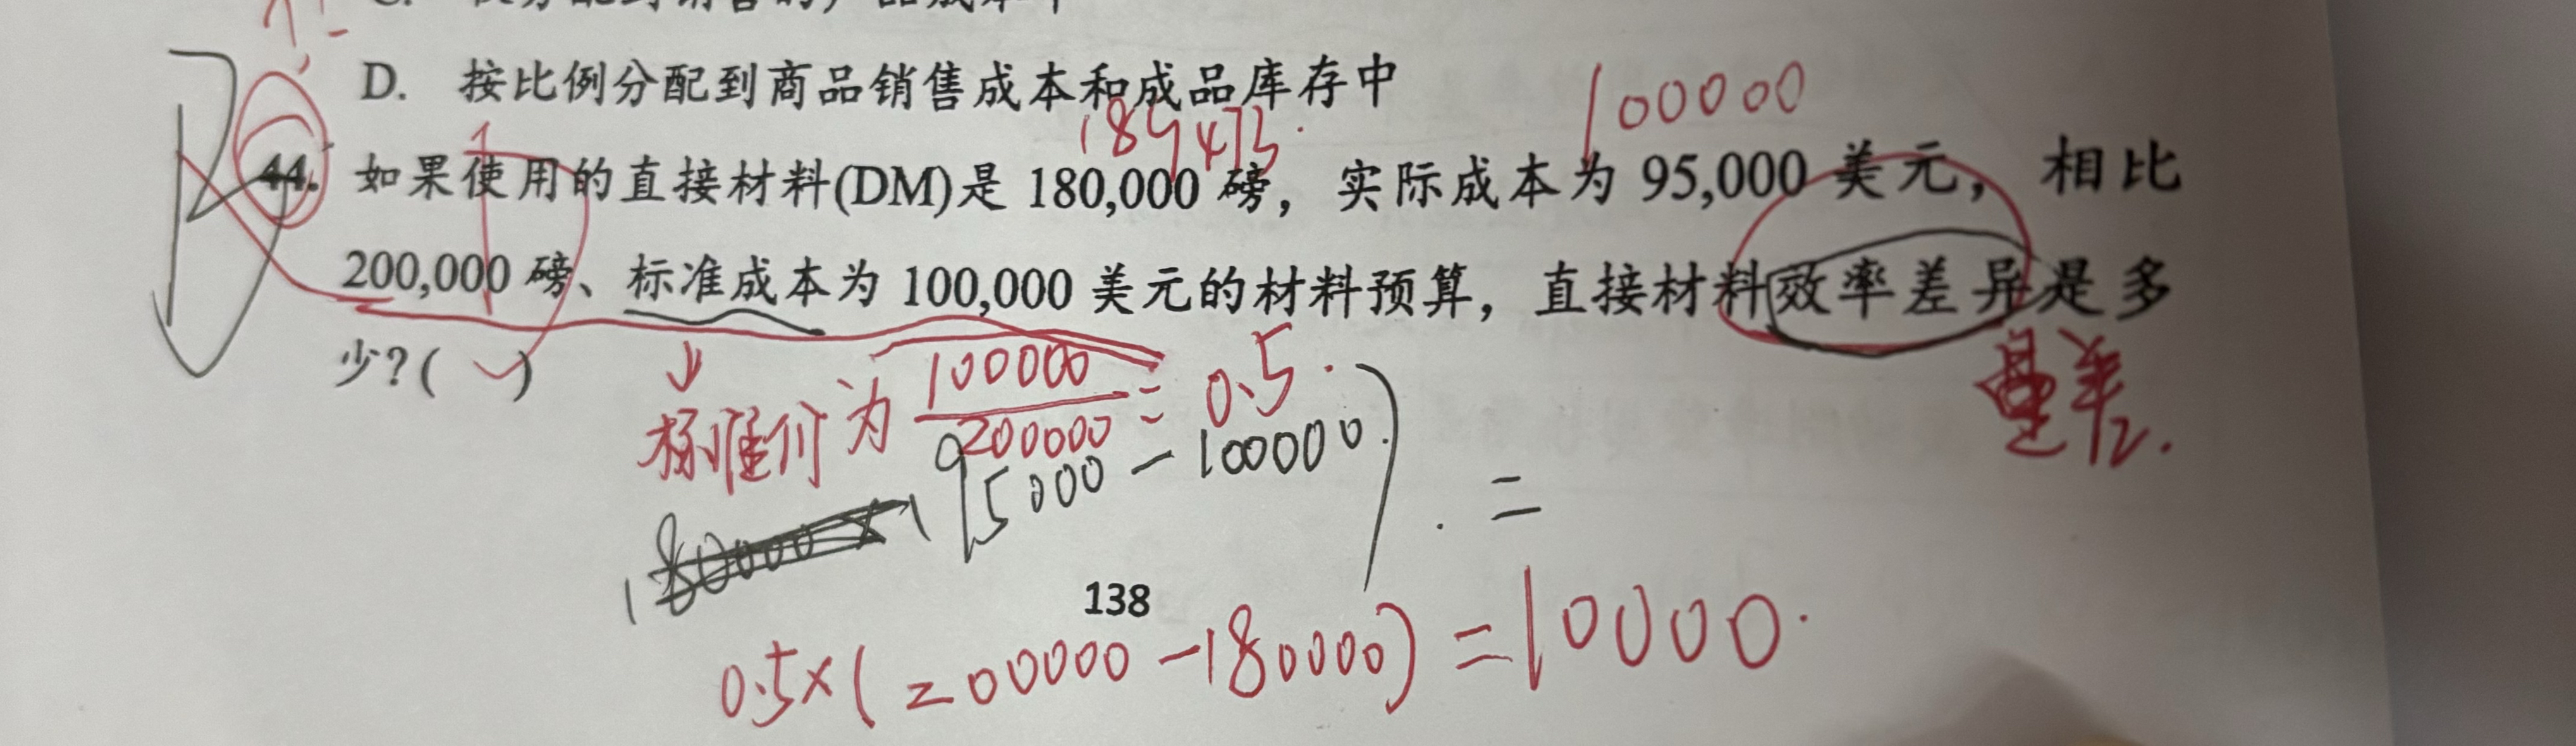 D. 按比例分配到商品销售成本和成品库存中
100000
189473.
44. 如果使用的直接材料(DM)是 180,000 磅，实际成本为 95,000 美元，相比
200,000 磅、标准成本为 100,000 美元的材料预算，直接材料效率差异是多
少?( )
量差.
标准价为 100000 / 200000 = 0.5.
95000 - 100000) . =
138
0.5×(200000-180000)=10000.